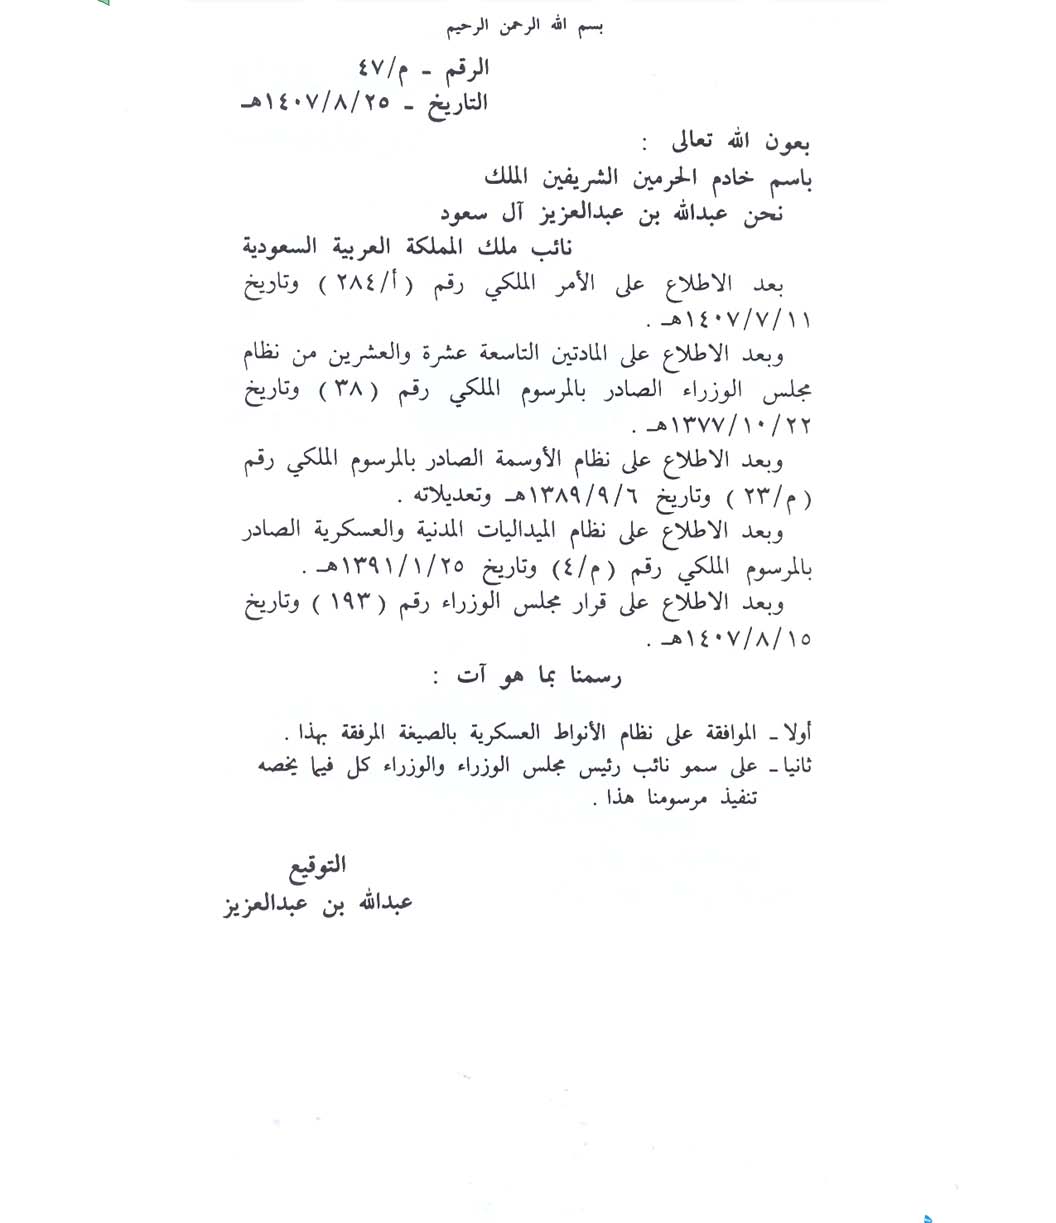 بسم الله الرحمن الرحيم
الرقم - م/٤٧
التاريخ - ١٤٠٧/٨/٢٥هـ
بعون الله تعالى :
باسم خادم الحرمين الشريفين الملك
نحن عبدالله بن عبدالعزيز آل سعود
نائب ملك المملكة العربية السعودية
بعد الاطلاع على الأمر الملكي رقم ( أ/٢٨٤ ) وتاريخ
١٤٠٧/٧/١١هـ .
وبعد الاطلاع على المادتين التاسعة عشرة والعشرين من نظام
مجلس الوزراء الصادر بالمرسوم الملكي رقم ( ٣٨ ) وتاريخ
١٣٧٧/١٠/٢٢هـ .
وبعد الاطلاع على نظام الأوسمة الصادر بالمرسوم الملكي رقم
( م/٢٣ ) وتاريخ ١٣٨٩/٩/٦هـ وتعديلاته .
وبعد الاطلاع على نظام الميداليات المدنية والعسكرية الصادر
بالمرسوم الملكي رقم ( م/٤) وتاريخ ١٣٩١/١/٢٥هـ .
وبعد الاطلاع على قرار مجلس الوزراء رقم ( ١٩٣ ) وتاريخ
١٤٠٧/٨/١٥هـ .
رسمنا بما هو آت :
أولا - الموافقة على نظام الأنواط العسكرية بالصيغة المرفقة بهذا .
ثانيا - على سمو نائب رئيس مجلس الوزراء والوزراء كل فيما يخصه
تنفيذ مرسومنا هذا .
التوقيع
عبدالله بن عبدالعزيز